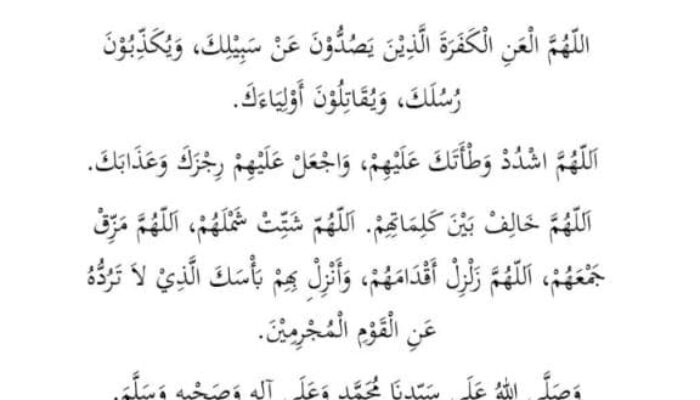 اللّهُمَّ الْعَنِ الْكَفَرَةَ الَّذِيْنَ يَصُدُّوْنَ عَنْ سَبِيْلِكَ، وَيُكَذِّبُوْنَ
رُسُلَكَ، وَيُقَاتِلُوْنَ أَوْلِيَاءَكَ.
اَللّهُمَّ اشْدُدْ وَطْأَتَكَ عَلَيْهِمْ، وَاجْعَلْ عَلَيْهِمْ رِجْزَكَ وَعَذَابَكَ.
اَللّهُمَّ خَالِفْ بَيْنَ كَلِمَاتِهِمْ. اَللّهُمّ شَتِّتْ شَمْلَهُمْ، اَللّهُمَّ مَزِّقْ
جَمْعَهُمْ، اَللّهُمَّ زَلْزِلْ أَقْدَامَهُمْ، وَأَنْزِلْ بِهِمْ بَأْسَكَ الَّذِيْ لاَ تَرُدُّهُ
عَنِ الْقَوْمِ الْمُجْرِمِيْنَ.
وَصَلَّى اللهُ عَلَى سَيِّدِنَا مُحَمَّدٍ وَعَلَى آلِهِ وَصَحْبِهِ وَسَلَّمَ.